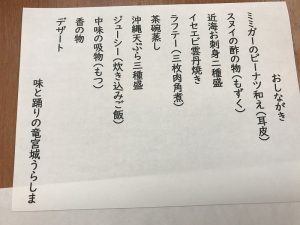 おしながき
ミミガーのピーナツ和え(耳皮)
スヌイの酢の物(もずく)
近海お刺身二種盛
イセエビ雲丹焼き
ラフテー(三枚肉角煮)
茶碗蒸し
沖縄天ぷら三種盛
ジューシー(炊き込みご飯)
中味の吸物(もつ)
香の物
デザート
味と踊りの竜宮城うらしま